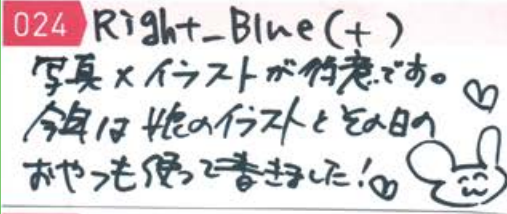 024 Right_Blue(+)
写真×イラストが得意です。
今年は他のイラストとその日の
おやつも使って書きました!